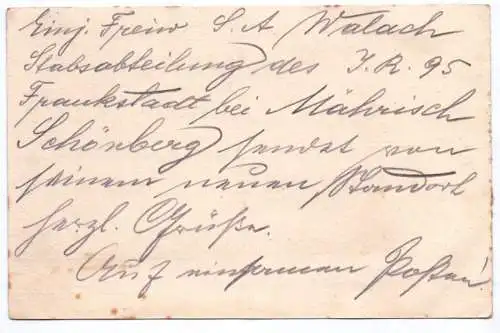 Einj. Freiw S. A Walach
Stabsabteilung des I. R. 95
Frankstadt bei Mährisch
Schönberg sendet von
seinem neuen Standort
herzl. Grüße.
Auf einsamen Posten!